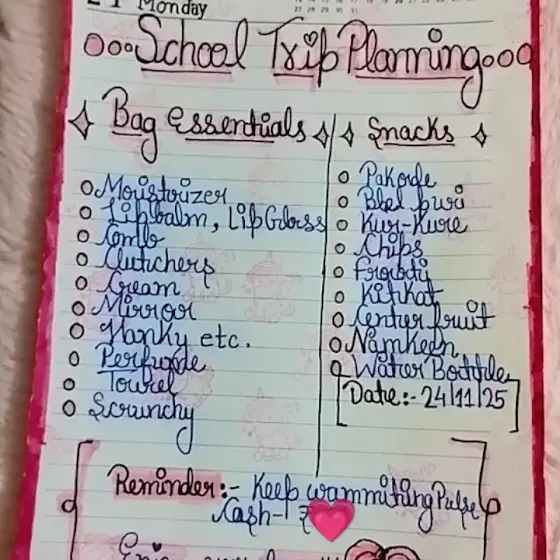 Monday
School Trip Planning
Bag Essentials
Mousturizer
Lipbalm, Lip Gloss
Comb
Clutchers
Cream
Mirror
Hanky etc.
Perfume
Towel
Scrunchy
Snacks
Pakode
Bhel puri
Kur-Kure
Chips
Kitkat
Center fruit
Namkeen
Water Bottle
Date:- 24/11/25
Reminder:- Keep wommiting Pulse
Cash- ₹